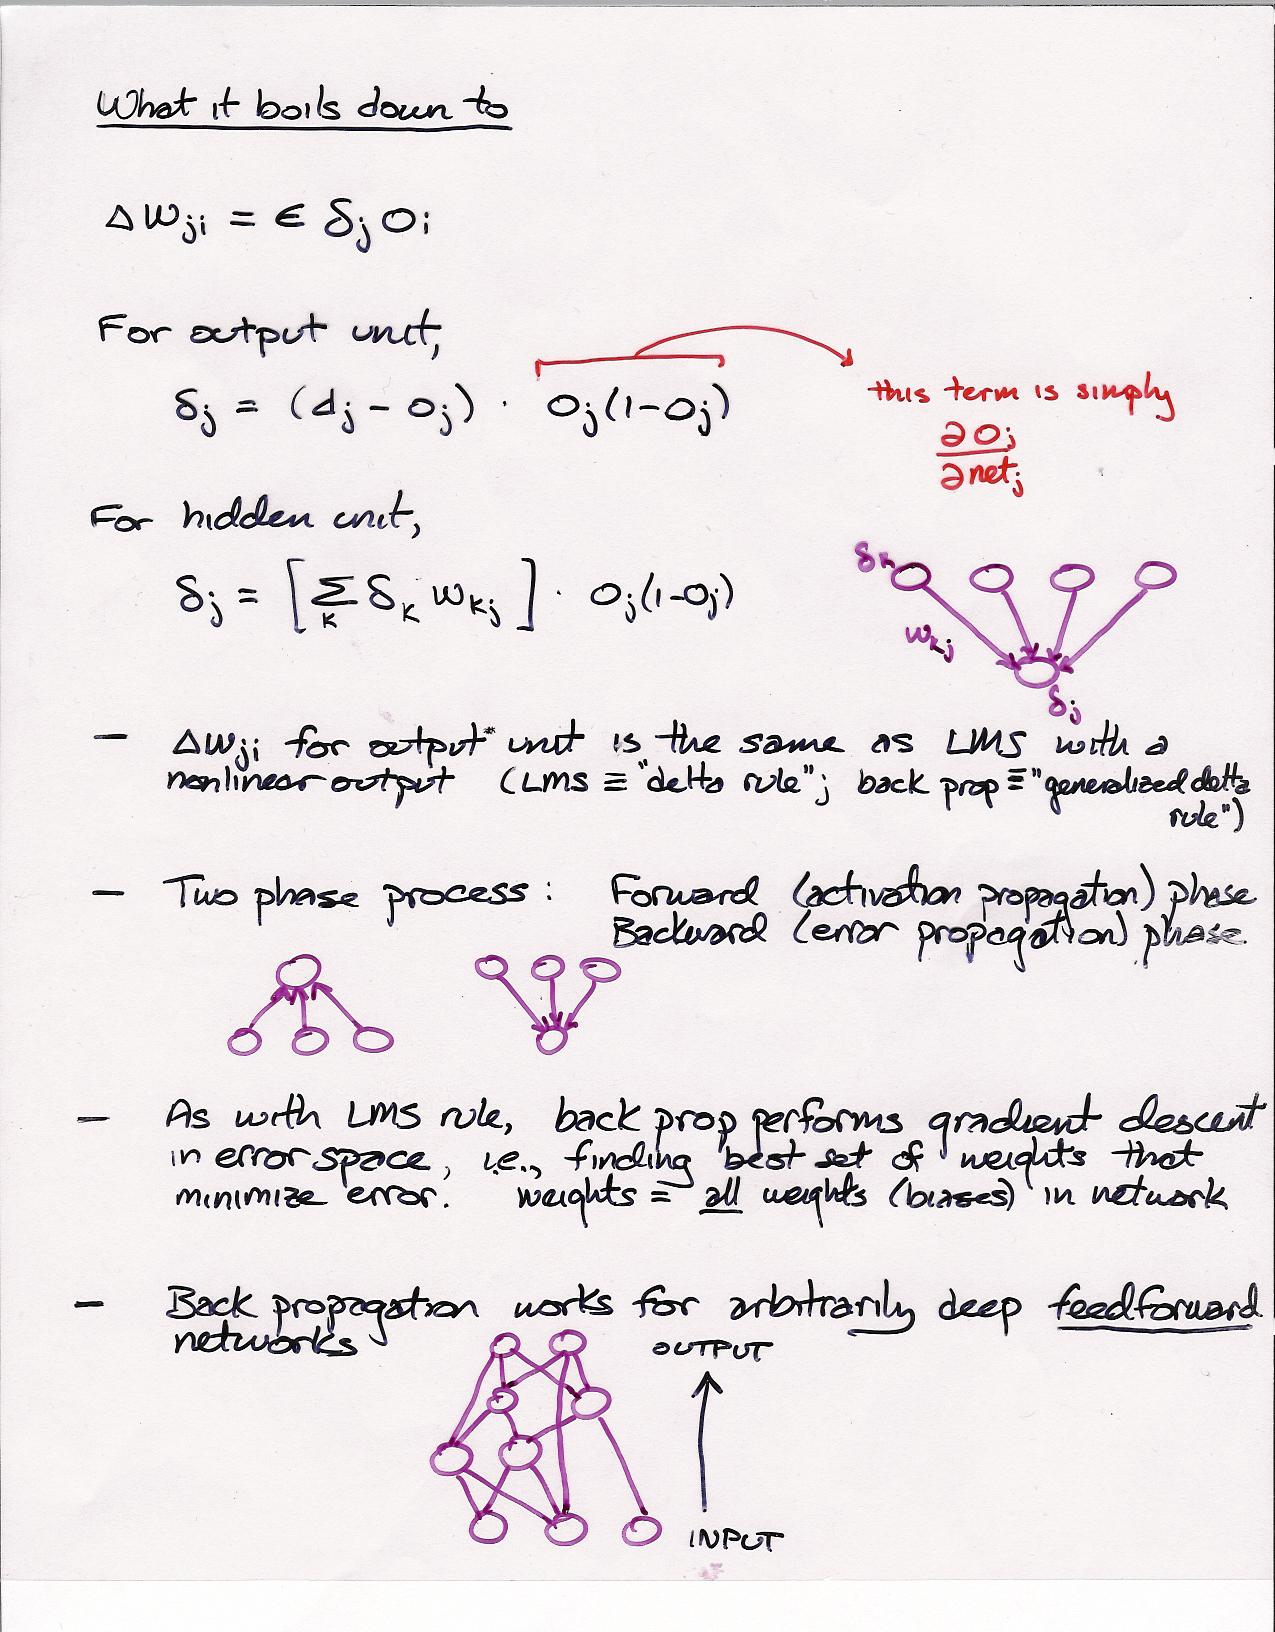 What it boils down to
Δwji = ε δj oi
For output unit,
δj = (dj - oj) · oj(1-oj)
this term is simply
∂oj
∂netj
For hidden unit,
δj = [Σk δk wkj] · oj(1-oj)
δk
wkj
δj
- Δwji for output unit is the same as LMS with a
nonlinear output (LMS ≡ "delta rule"; back prop ≡ "generalized delta
rule")
- Two phase process: Forward (activation propagation) phase
Backward (error propagation) phase.
- As with LMS rule, back prop performs gradient descent
in error space, i.e., finding best set of weights that
minimize error. weights = all weights (biases) in network
- Back propagation works for arbitrarily deep feedforward
networks
OUTPUT
INPUT